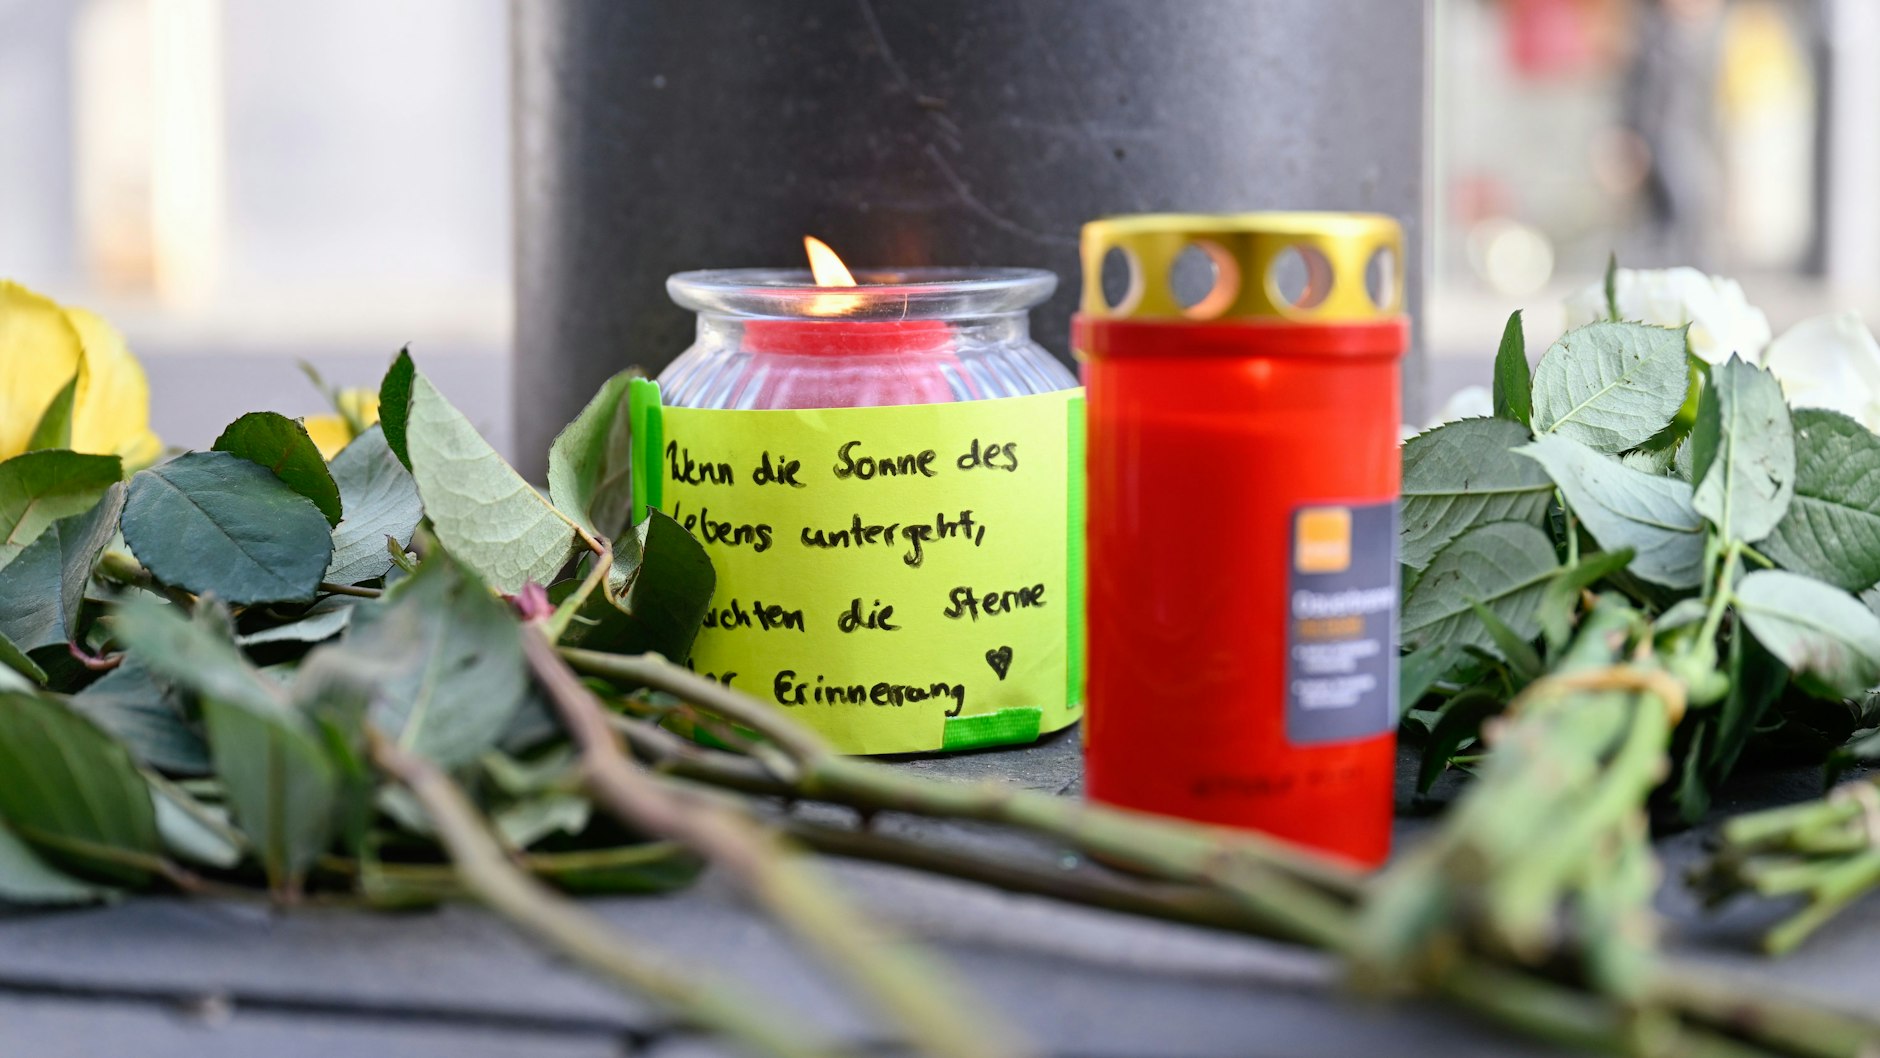 Wenn die Sonne des
Lebens untergeht,
leuchten die Sterne
der Erinnerung ♥